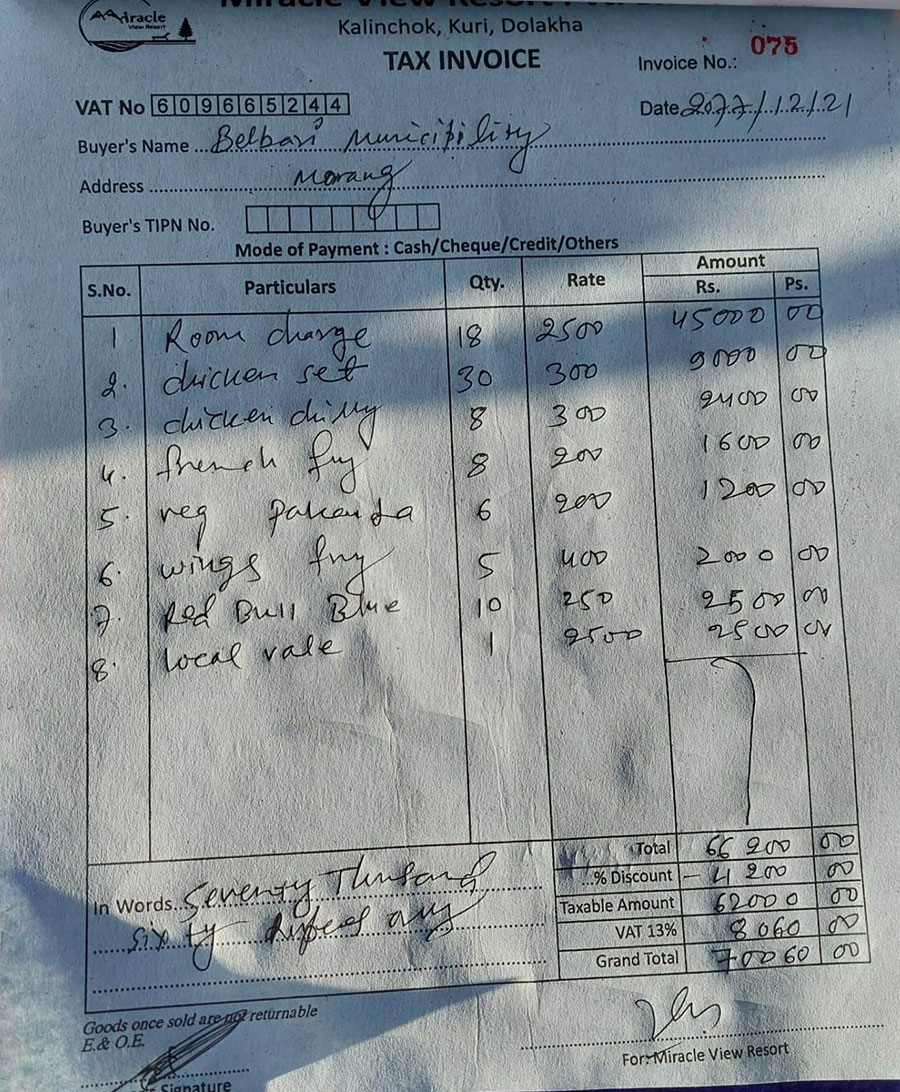 Miracle
View Resort
Miracle View Resort
Kalinchok, Kuri, Dolakha
TAX INVOICE
Invoice No.: 075
VAT No 609665244
Date 2077/12/21
Buyer's Name Belbari Municipility
Address Morang
Buyer's TIPN No.
Mode of Payment : Cash/Cheque/Credit/Others
S.No. Particulars Qty. Rate Amount Rs. Ps.
1 Room charge 18 2500 45000 00
2. chicken set 30 300 9000 00
3. chicken chilly 8 300 2400 00
4. french fry 8 200 1600 00
5. veg pakauda 6 200 1200 00
6. wings fry 5 400 2000 00
7. Red Bull Blue 10 250 2500 00
8. local 1 2500 2500 00
Total 66200 00
% Discount - 4200 00
Taxable Amount 62000 00
VAT 13% 8060 00
Grand Total 70060 00
In Words.. Seventy Thusand
sixty
Goods once sold are not returnable
E.& O.E.
Signature
For:-Miracle View Resort